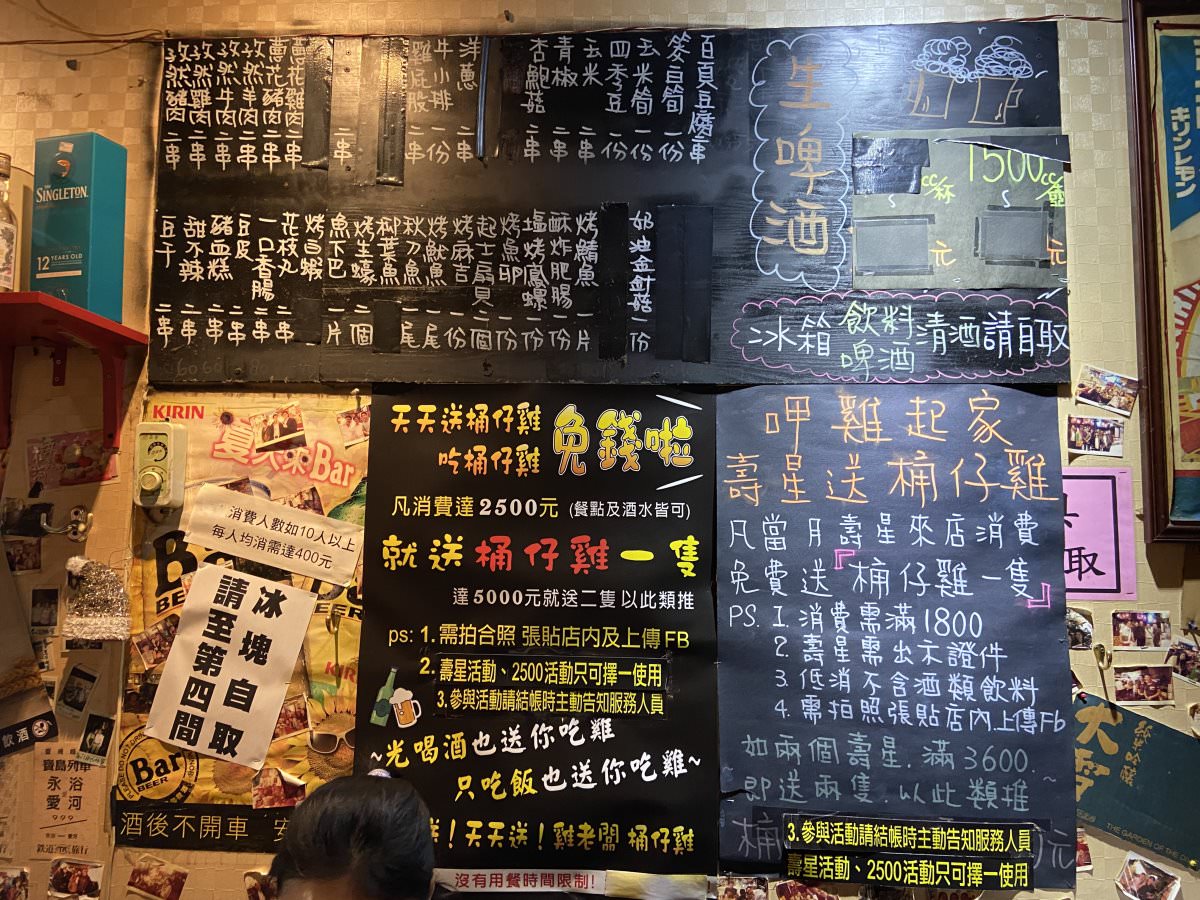 孜然豬肉 二串
孜然雞肉 二串
孜然牛肉 二串
孜然羊肉 二串
蔥花豬肉 二串
蔥花雞肉 二串
二串
雞屁股 二串
牛小排 一份
洋蔥 二串
杏鮑菇 二串
青椒 二串
玉米 二串
四季豆 一份
玉米筍 一份
筊白筍 一份
百頁豆腐 二串
豆干 二串
甜不辣 二串
豬血糕 二串
豆皮 二串
一口香腸 二串
花枝丸 二串
烤白蝦
魚下巴 一片
烤生蠔 一個
柳葉魚
秋刀魚 一尾
烤魷魚 一尾
烤麻吉 一份
起士扇貝 一個
烤魚卵 一份
塩烤鳳螺 一份
酥炸肥腸 一份
烤鯖魚 一片
奶油金針菇 一份
生啤酒
cc/杯
1500cc/壺
元
元
冰箱 飲料 啤酒 清酒請自取
SINGLETON
12 YEARS OLD
キリンレモン
KIRIN
Bar
BEER
消費人數如10人以上
每人均消需達400元
冰塊自取
請至第四間
Bar
BEER
酒後不開車
天天送桶仔雞
吃桶仔雞 免錢啦
凡消費達2500元 (餐點及酒水皆可)
就送桶仔雞一隻
達5000元就送二隻 以此類推
ps: 1. 需拍合照 張貼店內及上傳FB
2. 壽星活動、2500活動只可擇一使用
3.參與活動請結帳時主動告知服務人員
~光喝酒也送你吃雞
只吃飯也送你吃雞~
送！天天送！雞老闆 桶仔雞
沒有用餐時間限制!
呷雞起家
壽星送桶仔雞
凡當月壽星來店消費
免費送『桶仔雞一隻』
PS. 1. 消費需滿1800
2. 壽星需出示證件
3. 低消不含酒類飲料
4. 需拍照張貼店內上傳Fb
如兩個壽星.滿3600.
即送兩隻.以此類推~
桶
元
3.參與活動請結帳時主動告知服務人員
壽星活動、2500活動只可擇一使用
取
飲酒
寶島列車
永浴
愛河
999
THE GARDEN OF THE